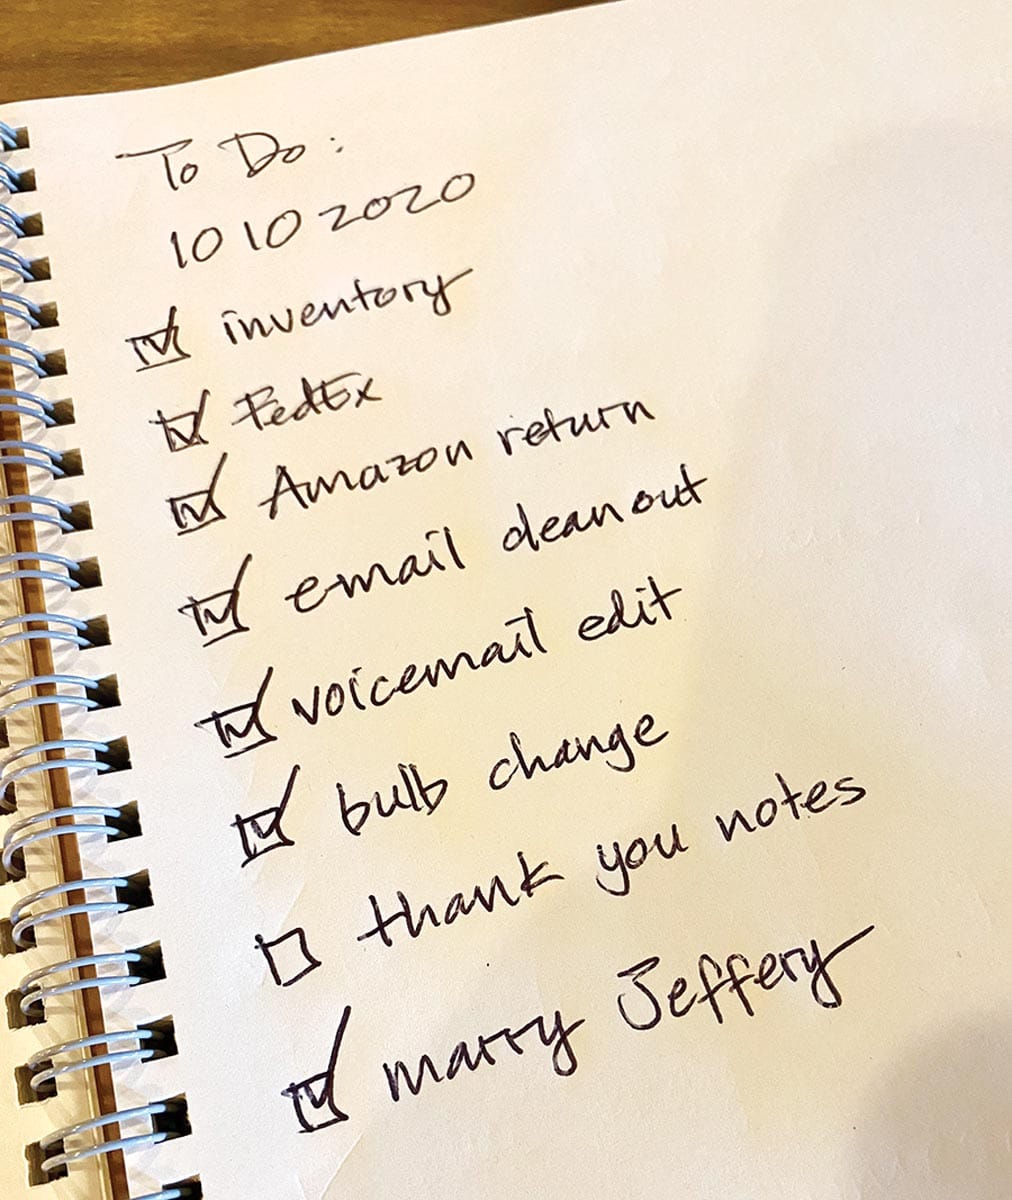 To Do:
10 10 2020
inventory
FedEx
Amazon return
email cleanout
voicemail edit
bulb change
thank you notes
marry Jeffery